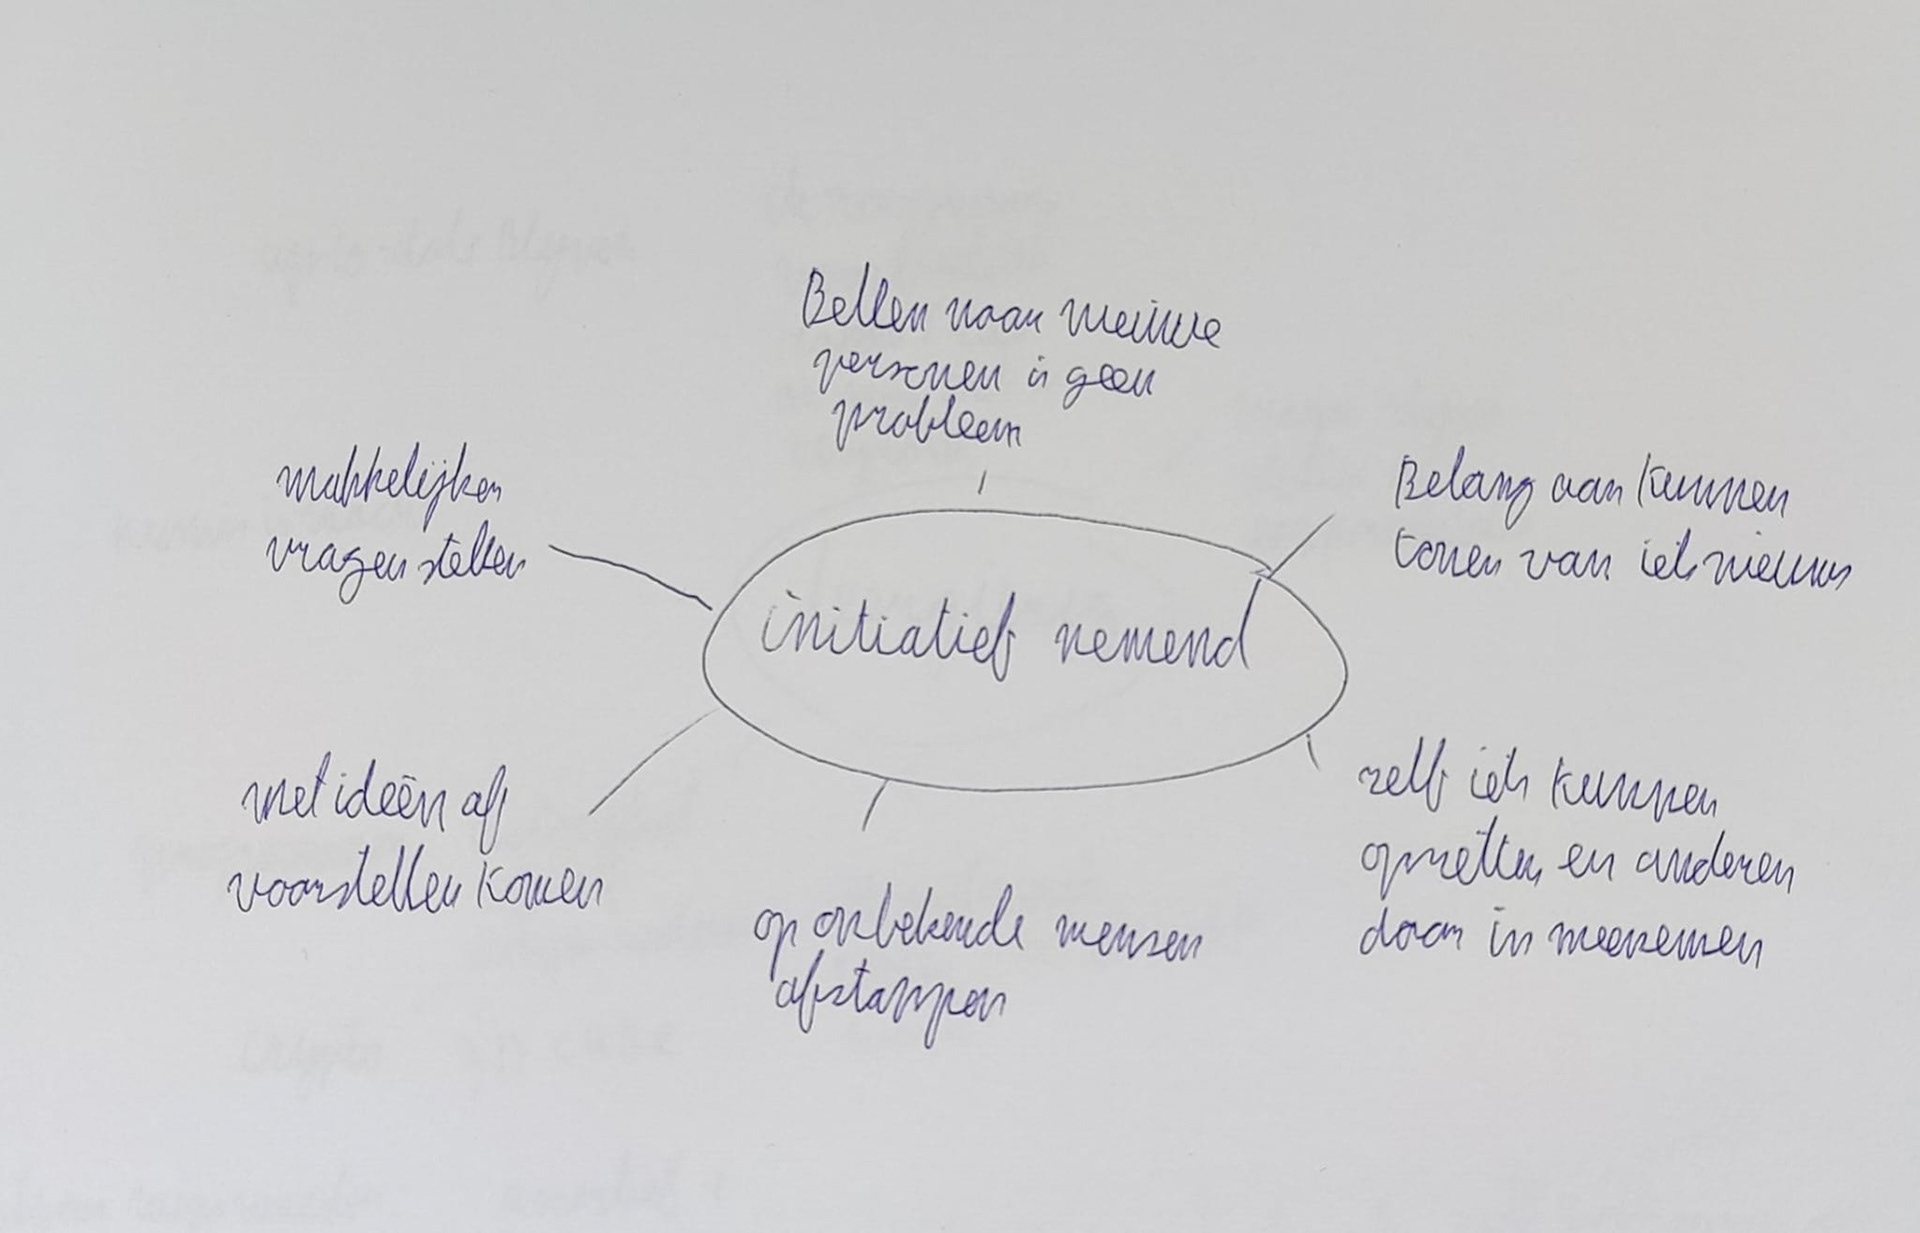 Bellen naar nieuwe
personen is geen
probleem
makkelijken
vragen stellen
Belang aan kunnen
tonen van iets nieuws
initiatief nemend
met ideën af
voorstellen komen
zelf iets kunnen
opzetten en anderen
daar in meenemen
op onbekende mensen
afstappen